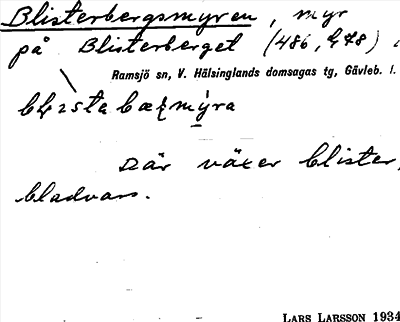 Blisterbergsmyren, myr
på Blisterberget (486, 478).
Ramsjö sn, V. Hälsinglands domsagas tg, Gävleb. l.
Där växer blister,
bladvass.
LARS LARSSON 1934